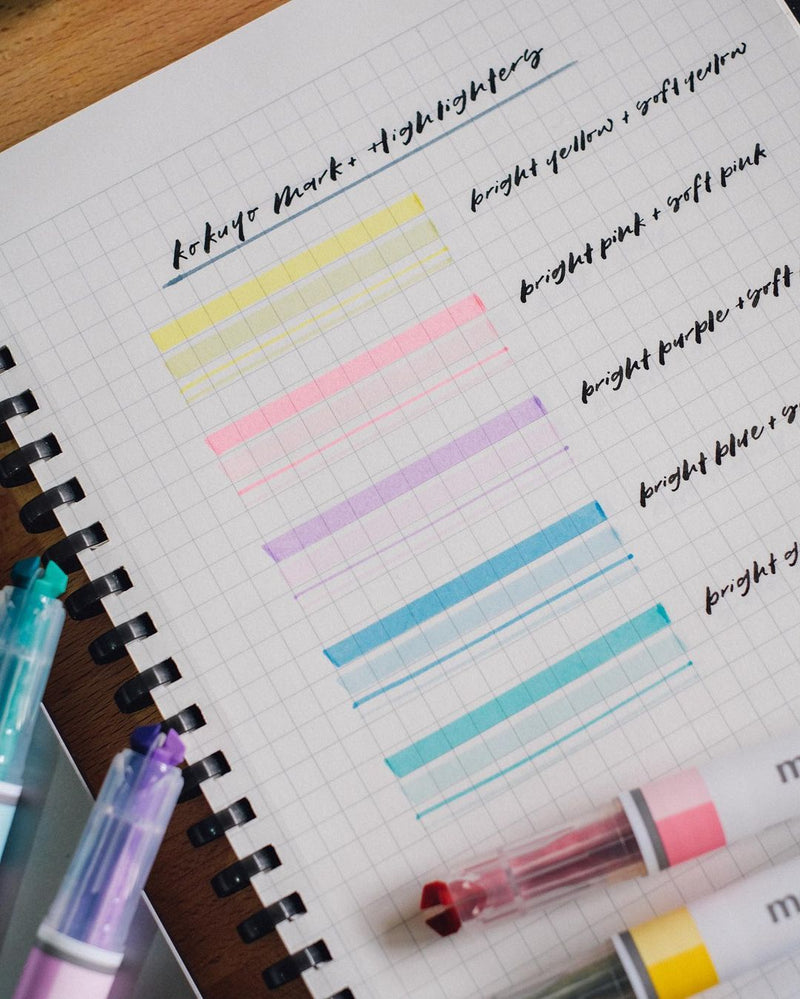 kokuyo Mark+ Highlighters
bright yellow + soft yellow
bright pink + soft pink
bright purple + soft
bright blue +
bright